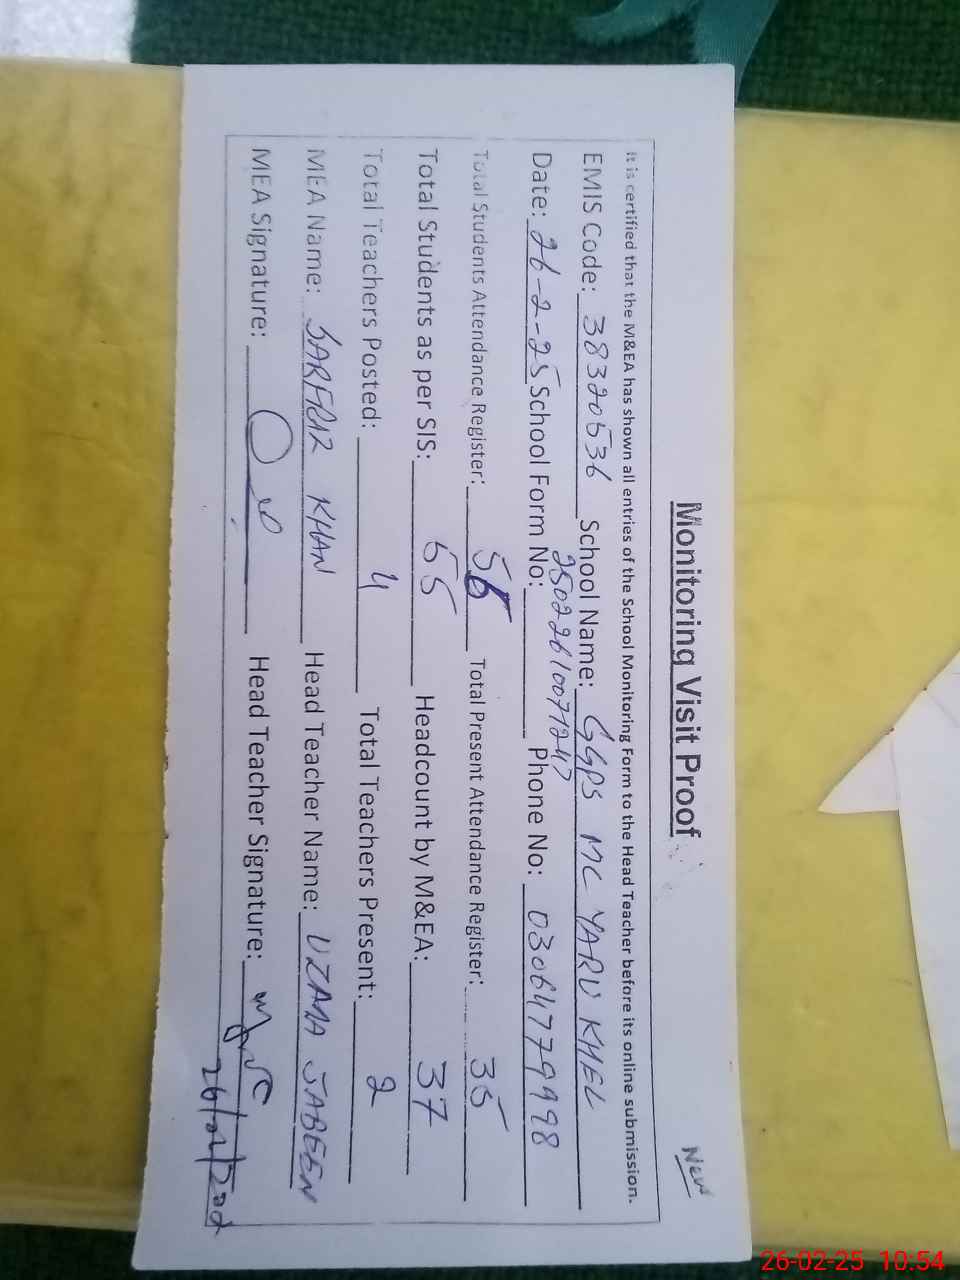 New
Monitoring Visit Proof
It is certified that the M&EA has shown all entries of the School Monitoring Form to the Head Teacher before its online submission.
EMIS Code: 38320536 School Name: GGPS MC YARU KHEL
Date: 26-2-25 School Form No: 25022610071247 Phone No: 03064779998
Total Students Attendance Register: 56 Total Present Attendance Register: 35
Total Students as per SIS: 55 Headcount by M&EA: 37
Total Teachers Posted: 4 Total Teachers Present: 2
MEA Name: SARFRAZ KHAN Head Teacher Name: UZAMA JABEEN
MEA Signature: Head Teacher Signature:
26-02-25 10:54